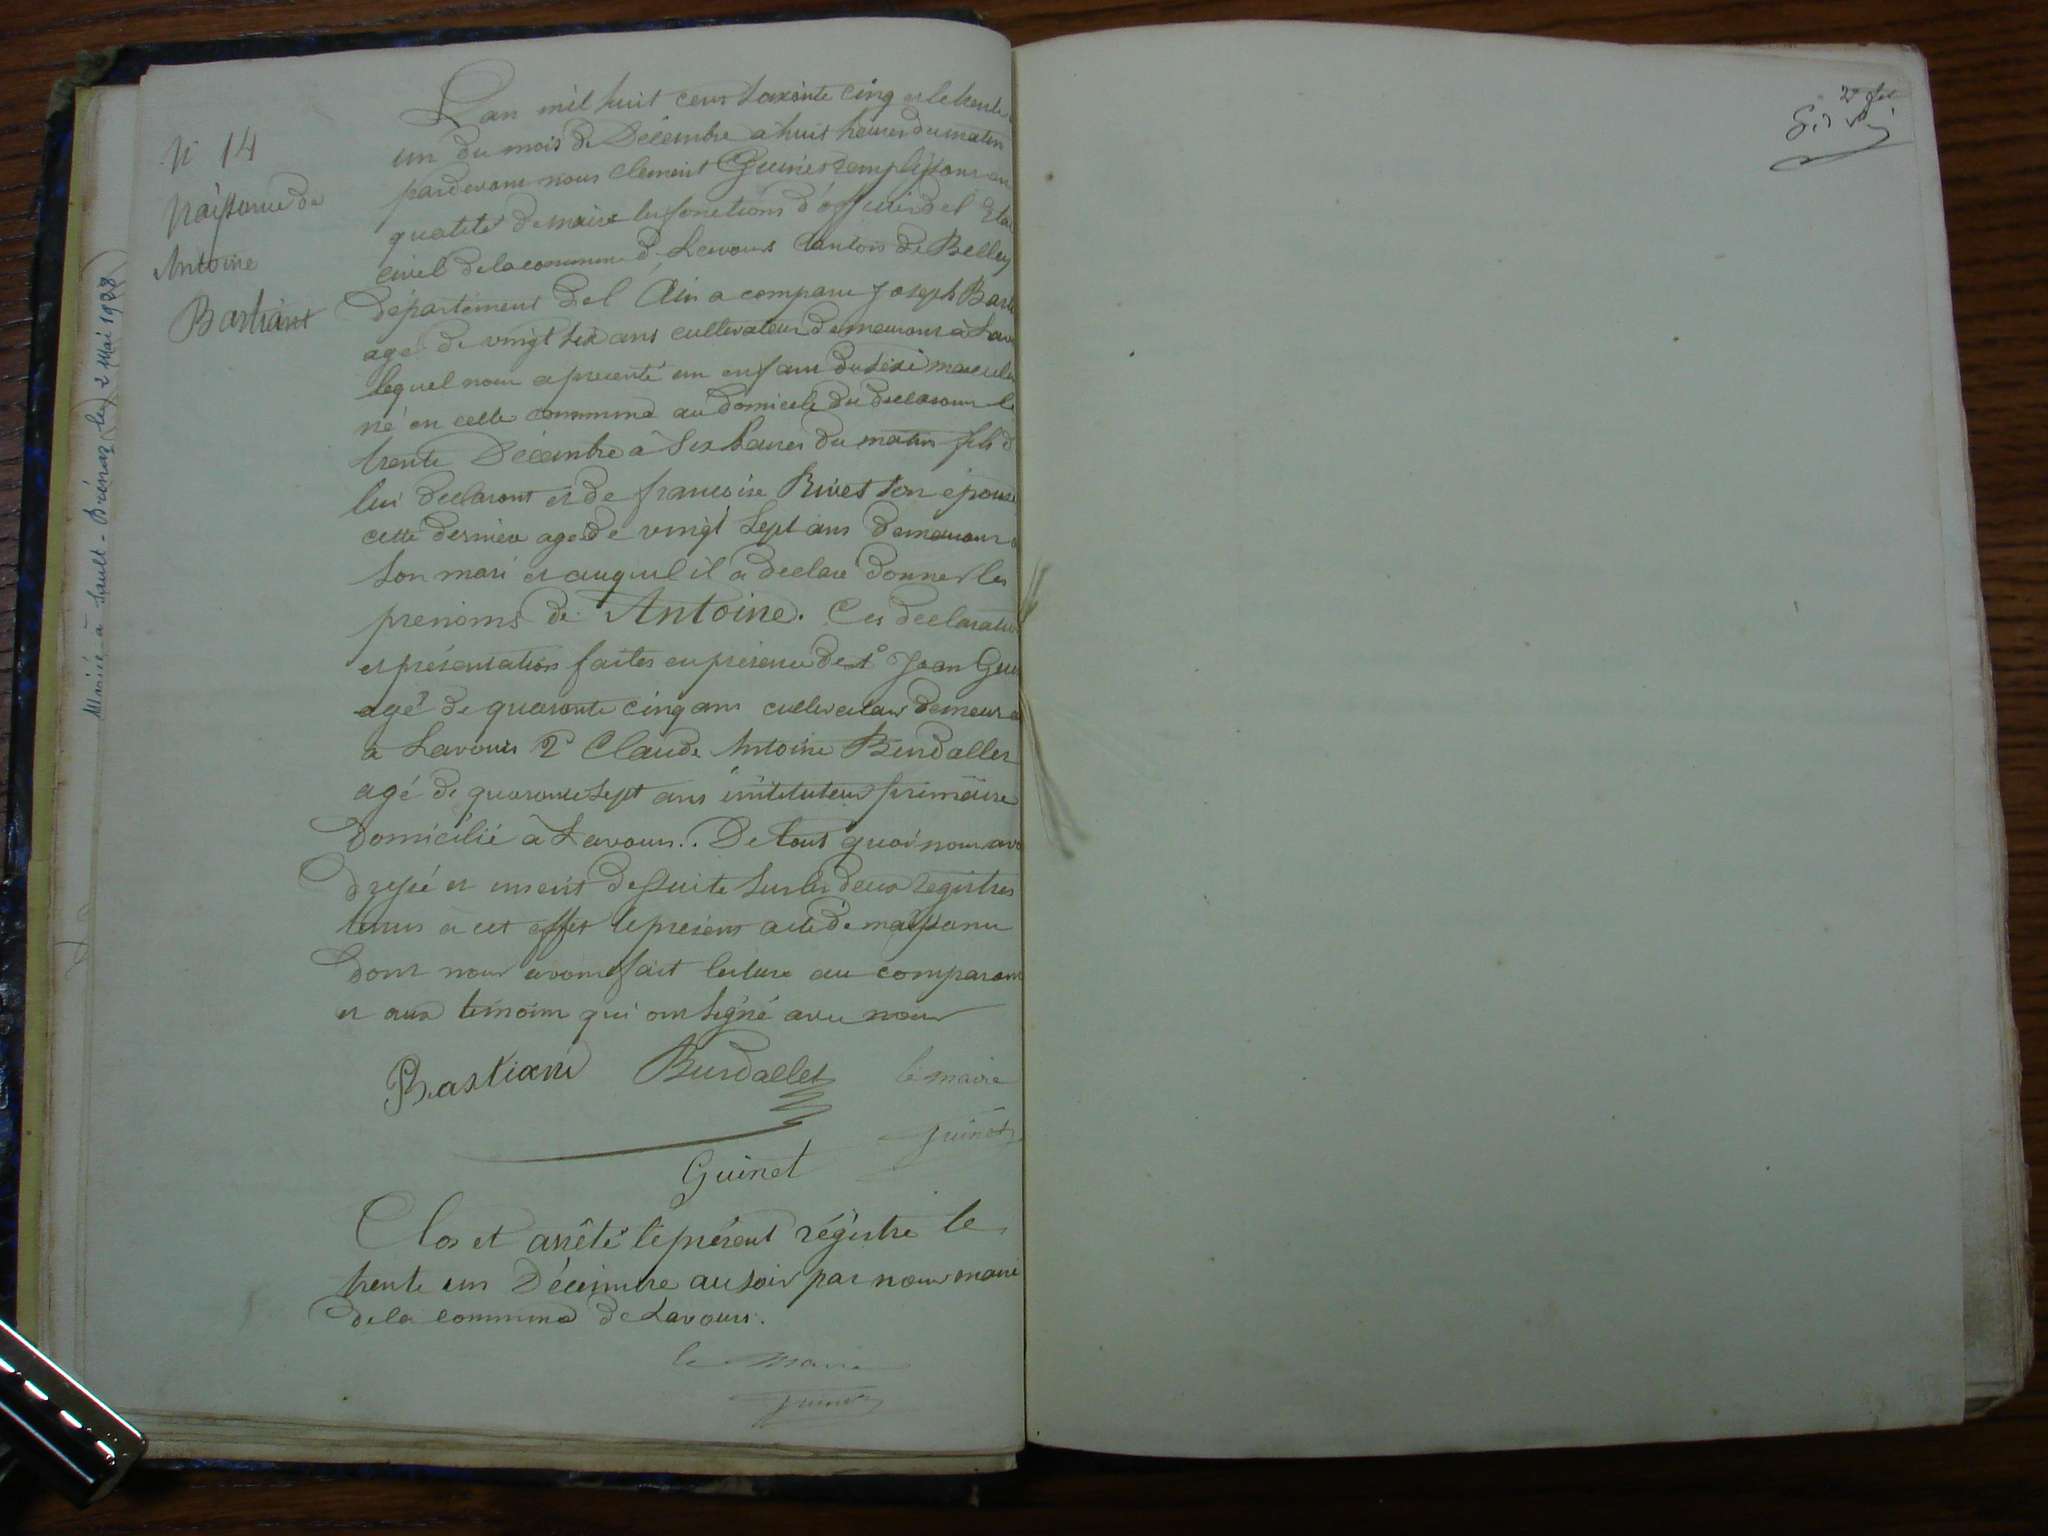 N° 14
Naissance de
Antoine
Bastiant
Marié à Sault-Brénaz le 2 Mai 1988
L'an mil huit cens soixante cinq et le trente
un du mois de Décembre à huit heures du matin
pardevant nous Clement Guinet remplissant en
qualité de maire les fonctions d'officier de l'Etat
civil de la commune de Lavours Canton de Belley
département de l'Ain a comparu Joseph Bast
agé de vingt six ans cultivateur demeurant à Lav
lequel nous a presenté un enfant du sexe masculin
né en cette commune au domicile du déclarant le
trente Décembre à six heures du matin fils d
lui declarant et de françoise Rivet son épouse
cette dernière agé de vingt sept ans demeurant
son mari et auquel il a declaré donner les
prenoms de Antoine. Ces declaration
et présentation faites en présence de 1° Jean Gui
agé de quarante cinq ans cultivateur demeura
à Lavours 2° Claude Antoine Burdallet
agé de quarante sept ans instituteur primaire
domicilié à Lavours. De tout quoi nous avo
dressé et inscrit de suite sur les deux registres
tenus à cet effet le présent acte de naissance
dont nous avons fait lecture au comparant
et aux témoins qui ont signé avec nous
Bastiant Burdallet le maire
Guinet
Guinet
Clos et arrêté le présent régistre le
trente un Décembre au soir par nous maire
de la commune de Lavours.
le Maire
Guinet